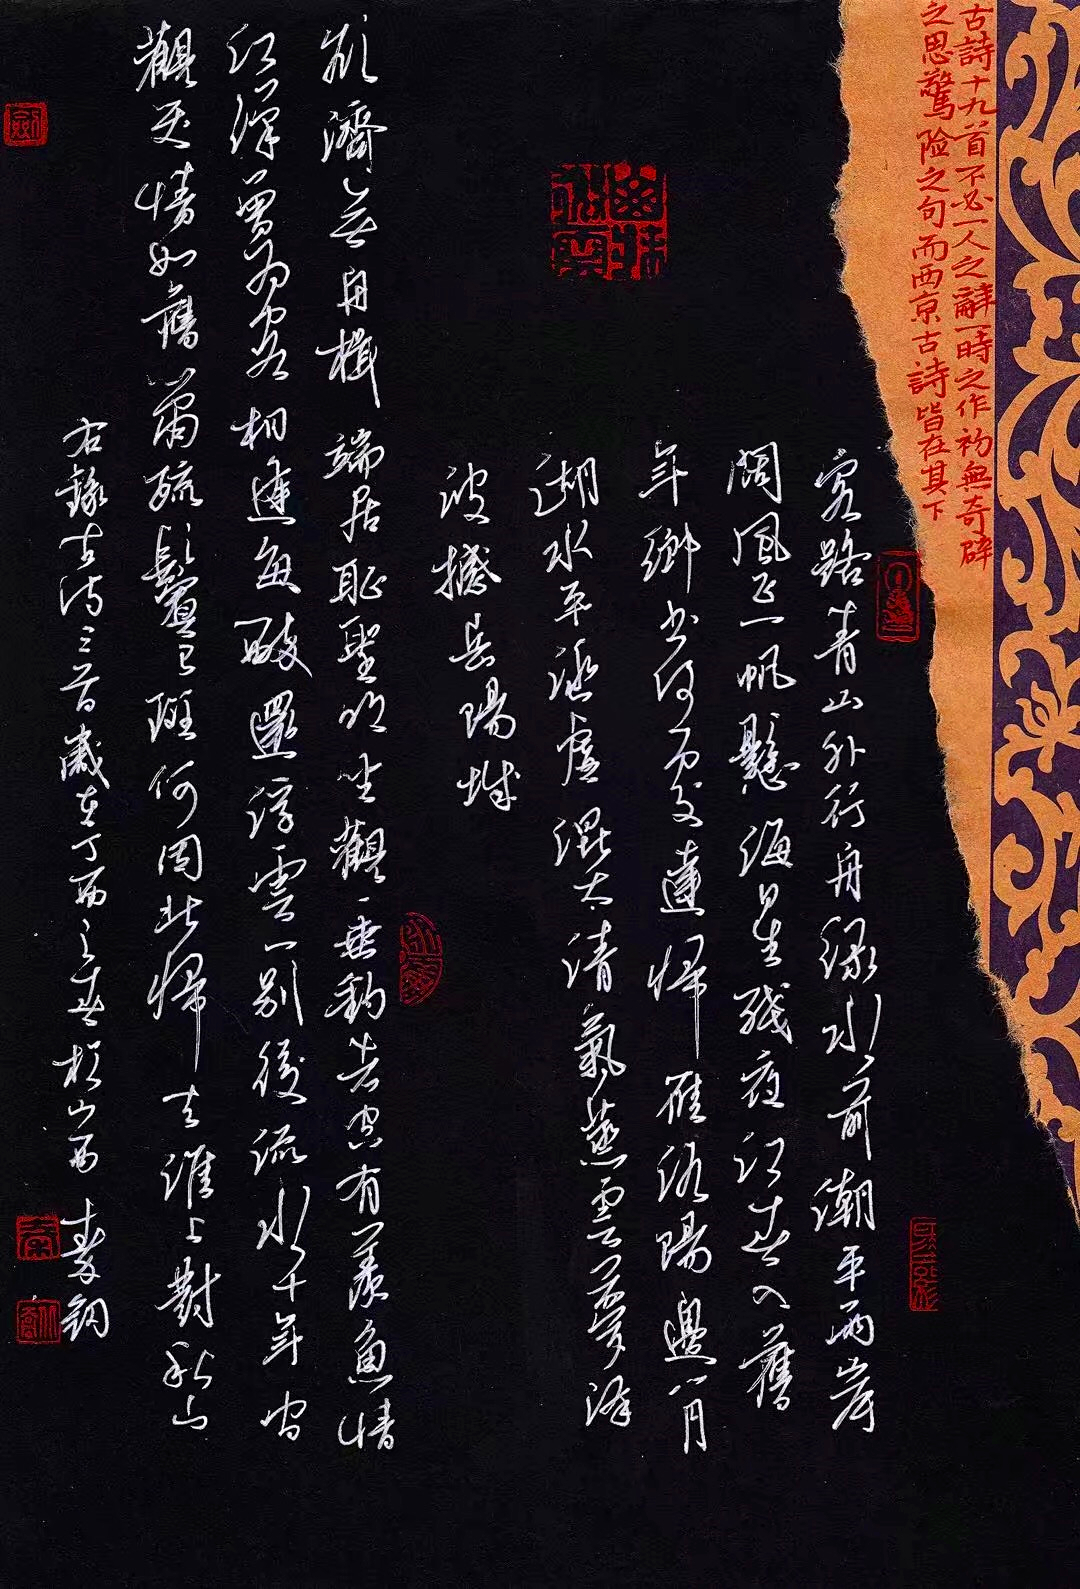 古詩十九首不必一人之辭一時之作初無奇辟
之思驚险之句而西京古詩皆在其下
客路青山外行舟绿水前潮平兩岸
闊風正一帆懸海日生殘夜江春入舊
年鄉书何處達歸雁洛陽邊八月
湖水平涵虛混太清氣蒸雲夢澤
波撼岳陽城
欲濟無舟楫端居恥聖明坐觀垂釣者空有羨魚情
江漢曾為客相逢每醉還浮雲一别後流水十年间
觀笑情如舊蕭疏鬢已斑何因北歸去淮上對秋山
右錄古詩三首歲在丁酉之春於山西秦釧